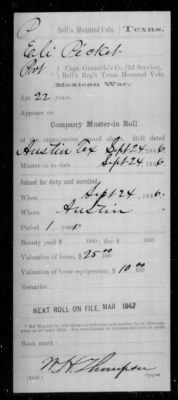 P Bell's Mounted Vols. Texas.
Eli Picket
Pvt., Capt. Grumble's Co. (2d Service),
Bell's Reg't Texas Mounted Vols.
Mexican War.
Age 22 years.
Appears on
Company Muster-in Roll
of the organization named above. Roll dated
Austin Tex Sept 24, 1846.
Muster-in to date Sept 24, 1846.
Joined for duty and enrolled:
When Sept 24, 1846.
Where Austin
Period 1 year
Bounty paid $ 100; due $ 100
Valuation of horse, $ 25.00 100
Valuation of horse equipments, $ 10.00 100
Remarks:
NEXT ROLL ON FILE, MAR 1847
Book mark:
W. H. Thompson
Copyist.